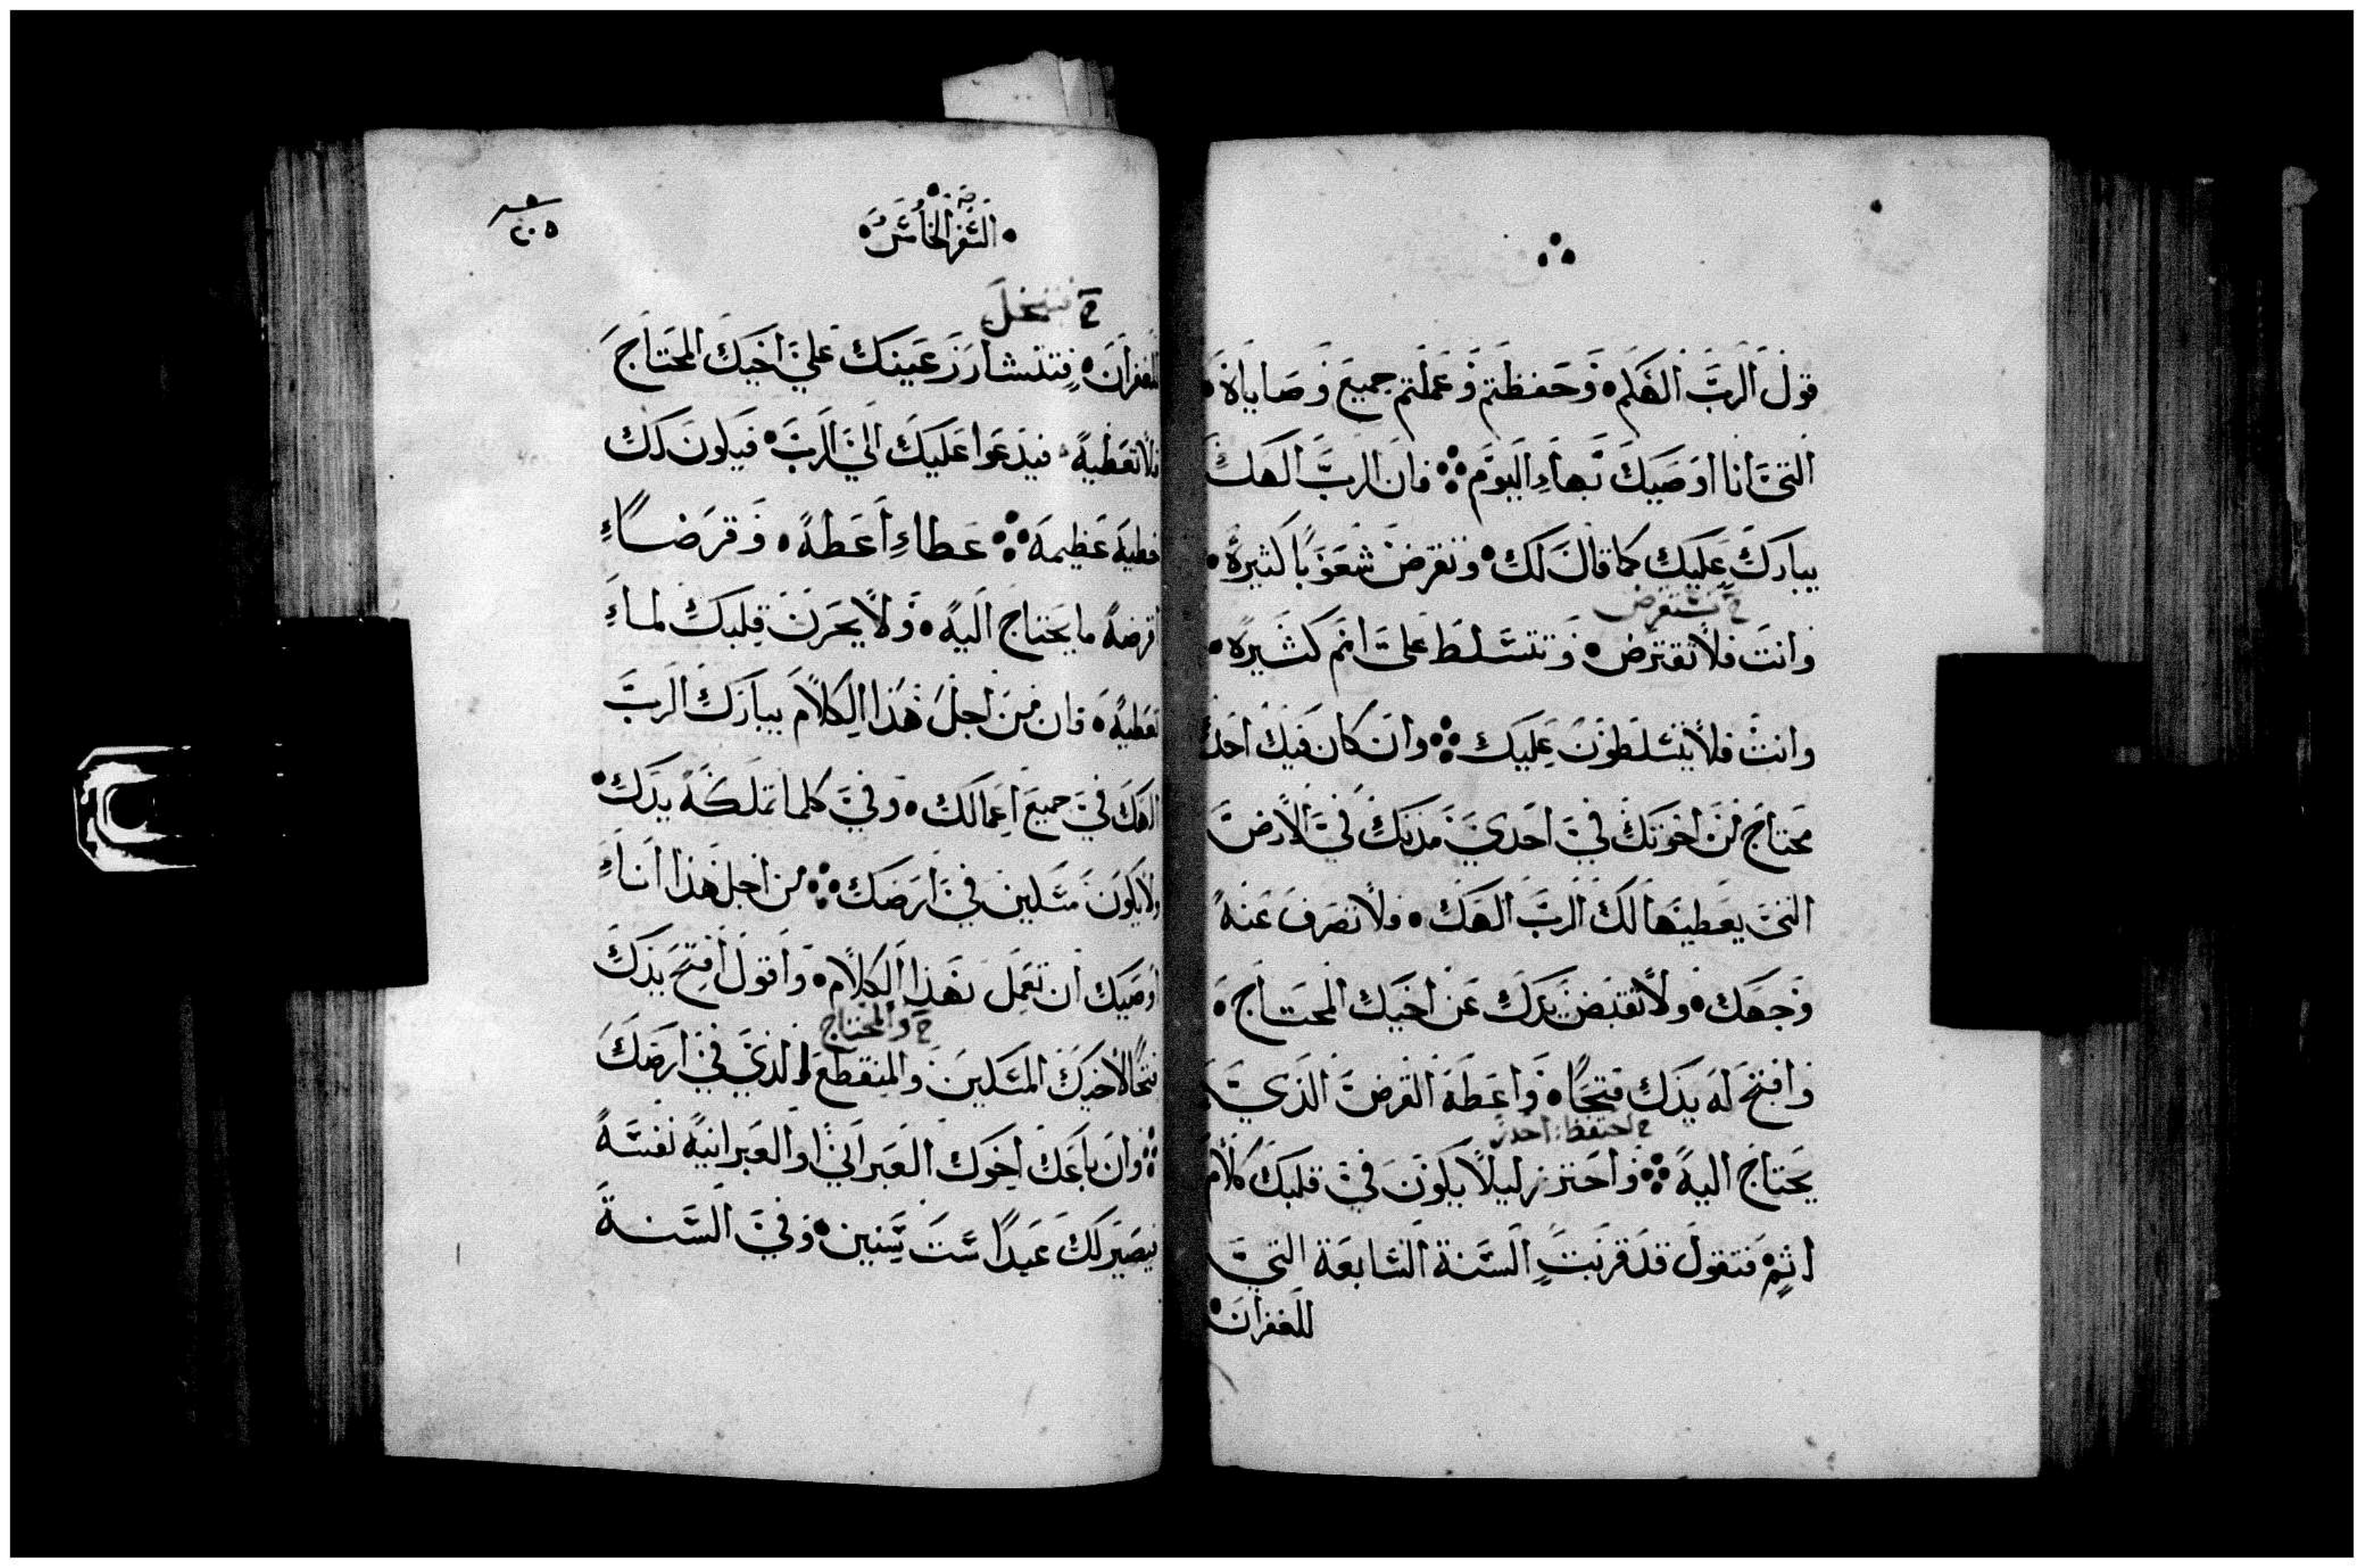 قول الرب الهكم • وحفظتم وعملتم جميع وصاياه •
التي انا اوصيك بها اليوم ܀ فان الرب الهك
يبارك عليك كما قال لك • وتقرض شعوبا كثيرة •
ح تستقرض
وانت فلا تقترض • وتتسلط على امم كثيره •
وانت فلا يتسلطون عليك ܀ وان كان فيك احد
محتاج من اخوتك في احدي مدنك في الارض
التي يعطيها لك الرب الهك • فلا تصرف عنه
وجهك • ولا تقبض يدك عن اخيك المحتاج •
وافتح له يدك فتحا • واعطه القرض الذي
ح احتفظ: احذر
يحتاج اليه ܀ واحترز ليلا يكون في قلبك كلام
اثم فتقول قد قربت السنة السابعة التي
للغفران •
• السفر الخامس •
٢٠٥
ح تبخل
للغفران • عينك علي اخيك المحتاج
فلا تعطيه • فيدعوا عليك الي الرب • فيكون لك
خطية عظيمة ܀ عطاء اعطه • وقرضا
اقرضه ما يحتاج اليه • ولا يحزن قلبك لما
تعطيه • فان من اجل هذا الكلام يبارك الرب
الهك في جميع اعمالك • وفي كلما تملكه يدك •
ولا يكون مسكين في ارضك ܀ من اجل هذا انا
اوصيك ان تعمل بهذا الكلام • واقول افتح يدك
ح والمحتاج
فتحا لاخيك المسكين والمنقطع الذي في ارضك
܀ وان باعك اخوك العبراني او العبرانيه نفسه
فيصير لك عبدا ست سنين • وفي السنة